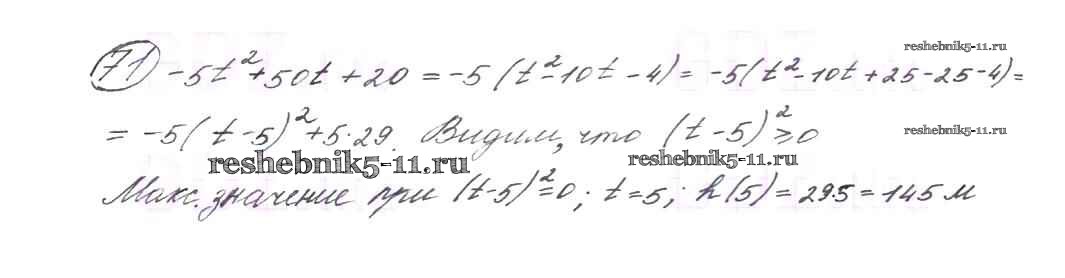 reshebnik5-11.ru
71) -5t²+50t+20 = -5(t²-10t-4) = -5(t²-10t+25-25-4) =
= -5(t-5)²+5·29. Видим, что (t-5)²≥0
reshebnik5-11.ru
reshebnik5-11.ru
reshebnik5-11.ru
Макс. значение при (t-5)²=0; t=5; h(5)=29·5=145 м